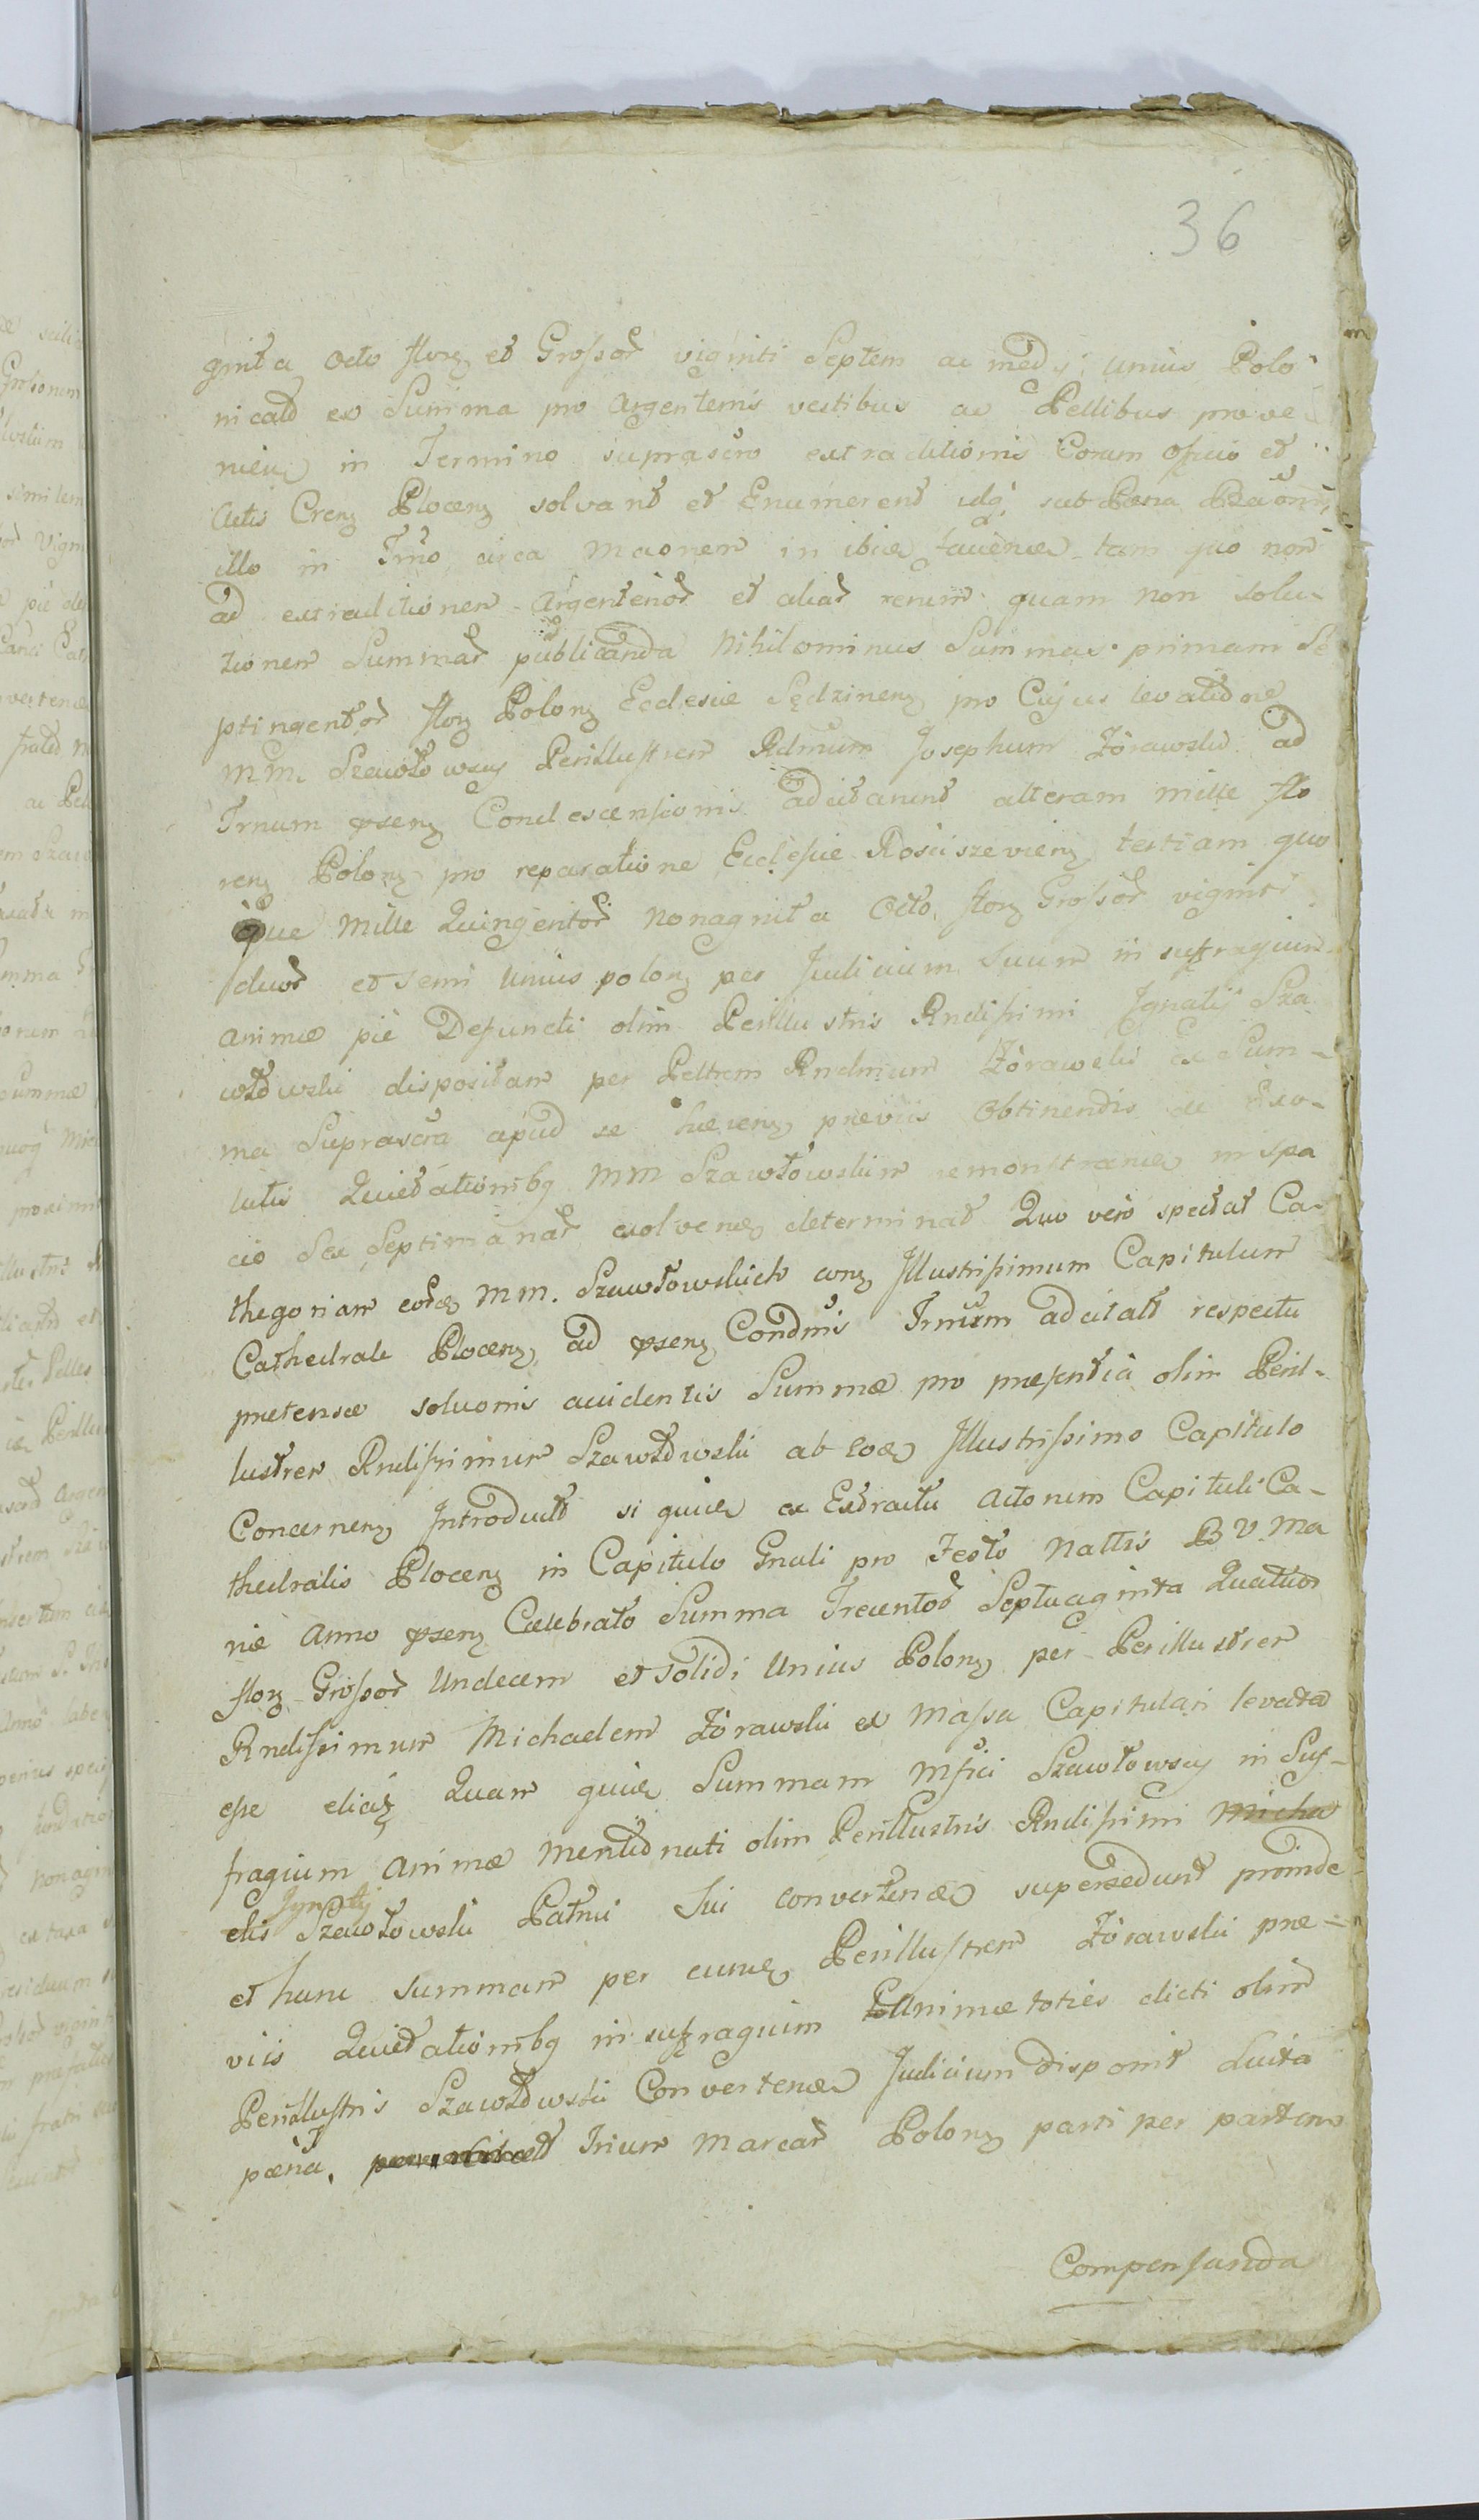 36
ginta octo flor et Grossor viginti Septem ac medij unius Polo
nicald ex Summa pro Argenteriis vestibus ac Pellibus prove
nien in Termino suprascro extraditionis Coram officio et
Actis Cren Plocen solvant et Enumerent idq sub Pena
illo in Trno circa in ibidem tam quo non
ad extraditionem Argenterior et aliar rerum quam non solu-
tionem Summar publicanda Nihilominus Summas primam Se
ptingentor flor Polon Ecclesiæ Sędzinen pro Cujus levatione
MM. Szawłowscy Perillustrem Rdmum Josephum Żórawski ad
Trnum præsen Condescensionis adcitarunt alteram mille flo
ren Polon pro reparatione Ecclesiæ Rosciszevien tertiam quo
que Mille Quingentor Nonaginta Octo flor Grossor viginti
duor et semi unius polon per Judicium Suum in suffragium
animæ piè Defuncti olim Perillustris Rndissimi Ignatij Sza
włowski dispositam per Peltrem Rndmum Żórawski ex Sum-
ma Suprascra apud se præviis Obtinendis de Exo-
lutis Quietationibq MM Szawłowskim in spa
cio Sex Septimanar exolven determinat Quo vero spectat Ca-
thegoriam MM. Szawłowskich Illustrissimum Capitulum
Cathedrale Plocen ad præsen Condnis Trnum adcitatt respectu
prætensæ soluonis accidentis Summæ pro præsentia olim Peril-
lustrem Rndissimum Szawłowski ab Illustrissimo Capitulo
Concernen Introductt si ex Extractu Actorum Capituli Ca-
thedralis Plocen in Capitulo Gnali pro Festo Nattis B V Ma
riæ Anno præsen Celebrato Summa Trecentor Septuaginta Quatuor
flor Grossor Undecem et solidi Unius Polon per Perillustrem
Rndissimum Michaelem Żórawski ex Massa Capitulari levata
esse Quam Summam Mfici Szawłowscy in Suf-
fragium Animæ Mentionati olim Perillustris Rndissimi Micha
elis Ignatij Szawłowski Patrui Sui supersedunt proinde
et hanc summam per Perillustrem Żórawski præ-
viis Quietationibq in suffragium Animæ toties dicti olim
Perillustris Szawłowski Judicium disponit Luita
pæna, Trium Marcar Polon parti per partem
Compensanda